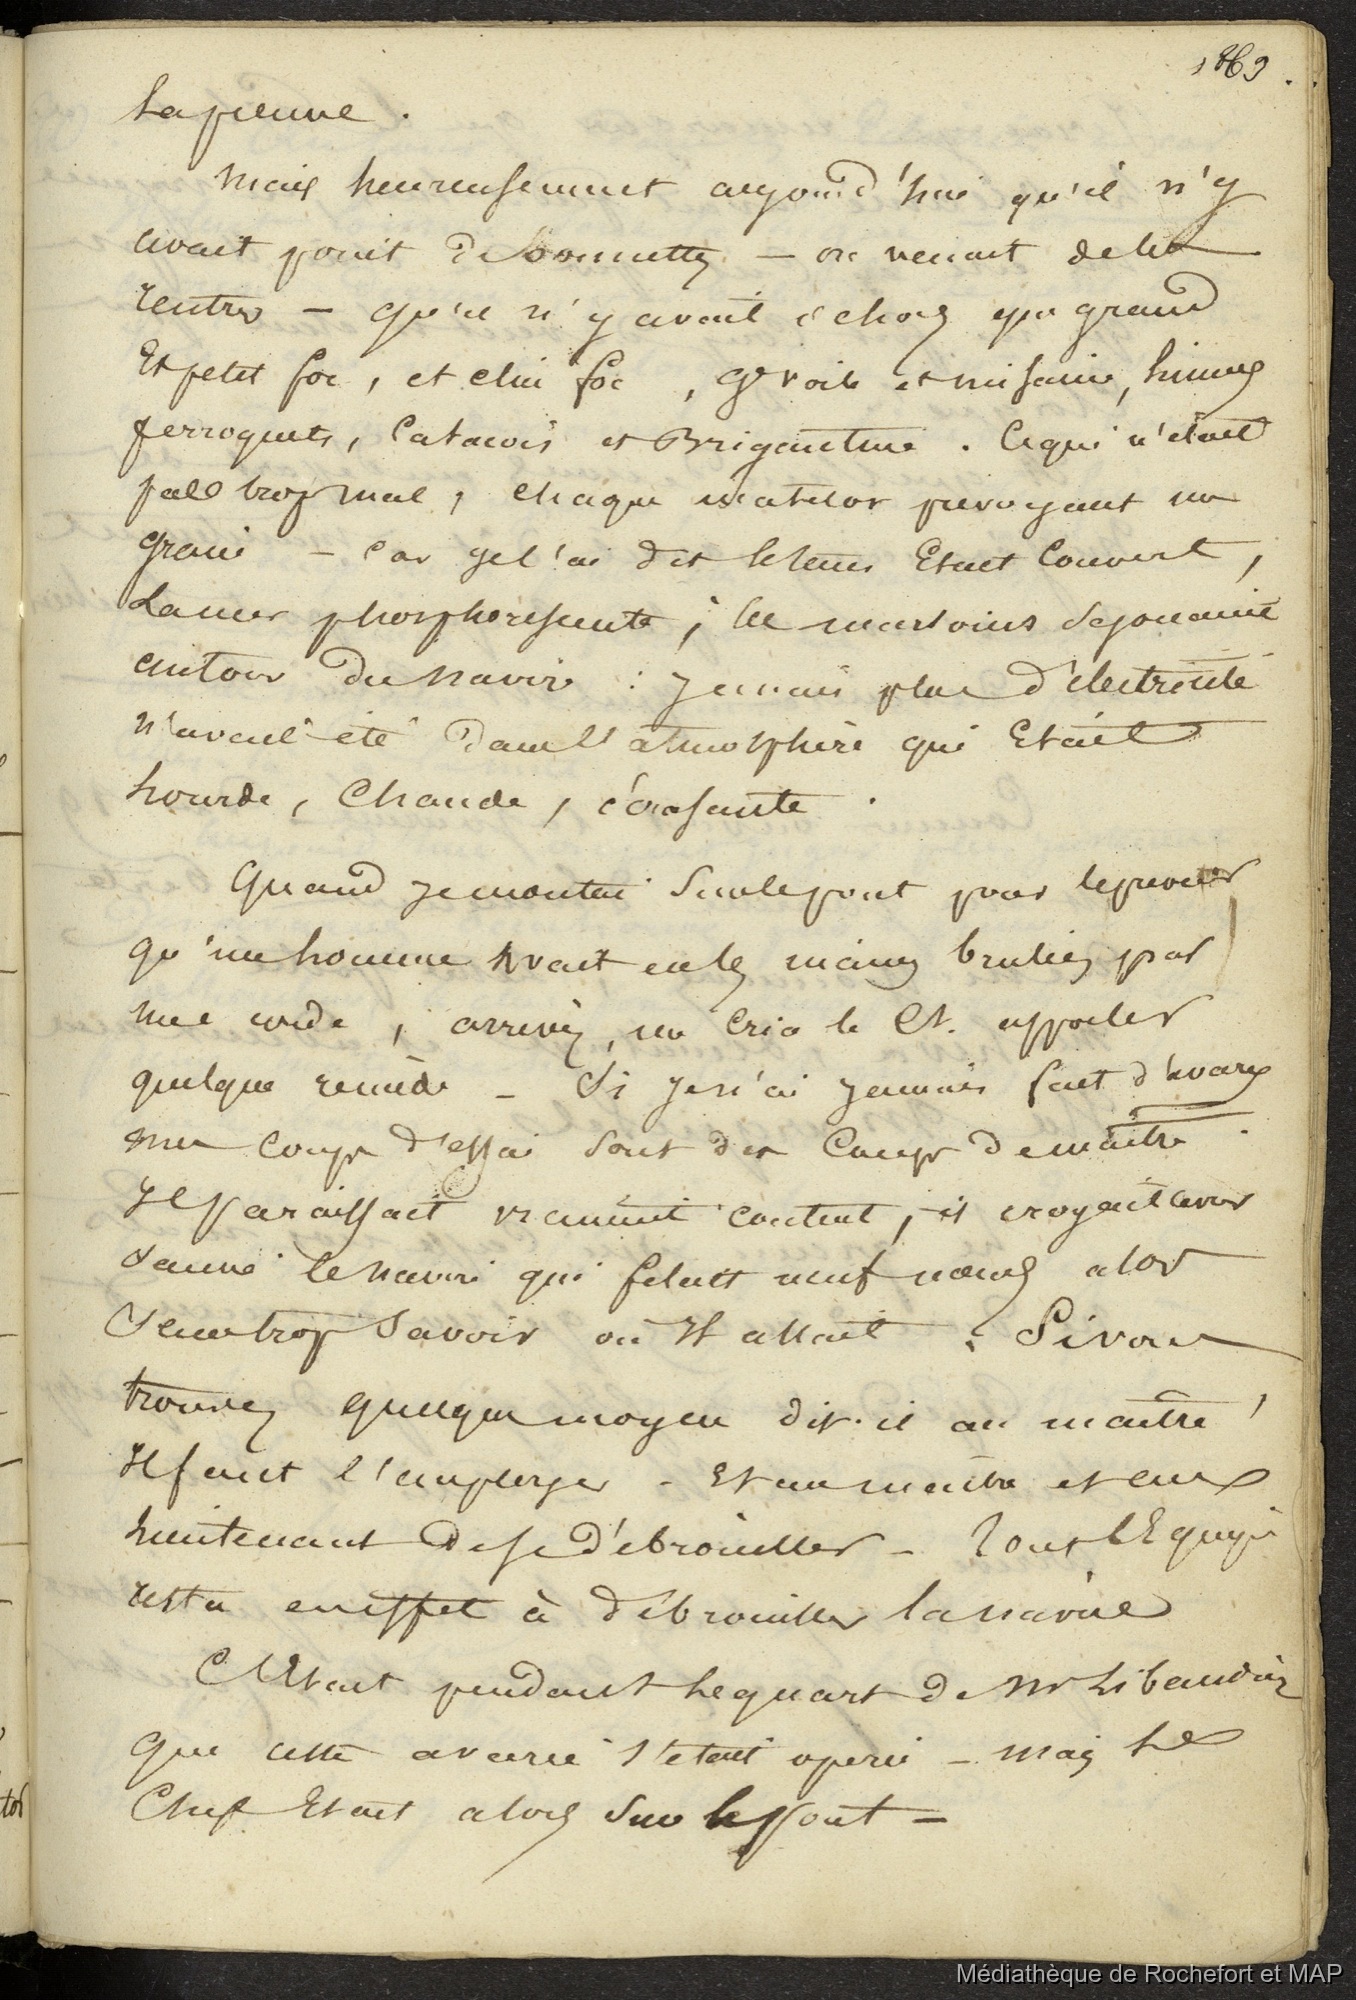 1863.
la pleine.
Mais heureusement aujourd'hui qu'il n'y
avait point de bonnettes — on venait de les
rentrer — qu'il n'y avait dehors que grand
Et petit foc, et clin foc, gd voile et misaine, hunes
perroquets, Catacois et Brigantine. Ce qui n'était
pas trop mal, chaque matelot prévoyant un
grain — Car je l'ai dit le temps Etait Couvert,
La mer phosphorescente, les marsouins se jouaient
autour du navire : jamais plus d'électricité
n'avait été dans l'atmosphère qui Etait
lourde, Chaude, écrasante.
Quand je montai Sur le pont pour
qu'un homme avait eu les mains brulées par
une corde, arrivez, me Cria le Ct. apporter
quelque remède — Si je n'ai jamais fait d'avaries
mes coups d'essai sont des Coups de maître.
Il paraissait vraiment content, il croyait avoir
sauvé le navire qui filait neuf nœuds alors
Sans trop Savoir où Il allait. Si vous
trouvez quelque moyen dit-il au maître,
Il faut l'employer — Et au maître et aux
lieutenant de se débrouiller — Tout l'Equipage
resta en effet à débrouiller la navire
C'Etait pendant le quart de Mr
que cette avarie s'était opérée — mais le
Chef Etait alors Sur le pont —
Médiathèque de Rochefort et MAP